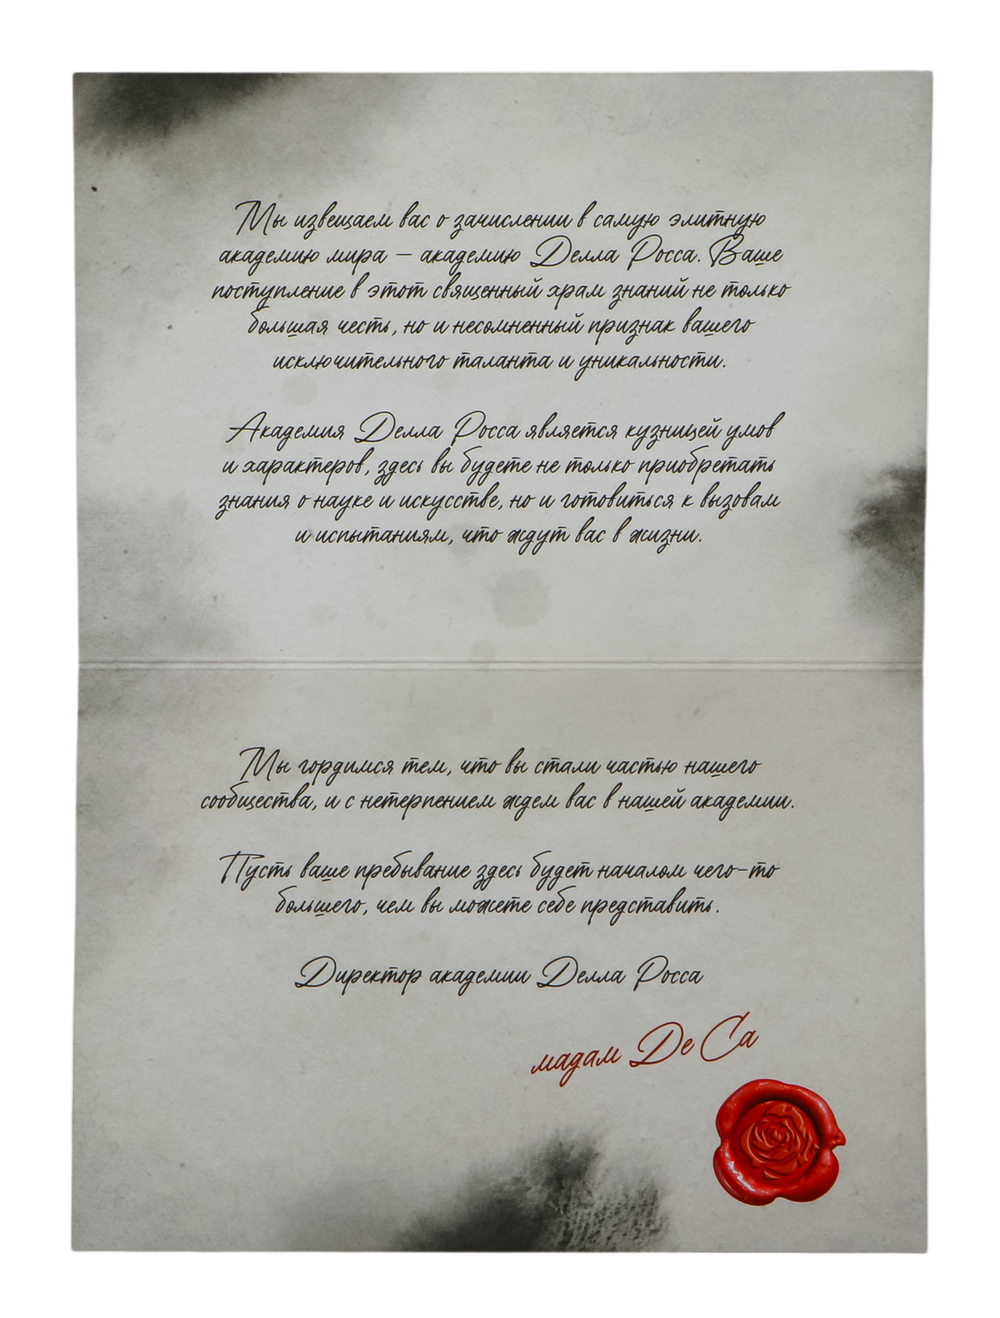 Мы извещаем вас о зачислении в самую элитную
академию мира – академию Делла Росса. Ваше
поступление в этот священный храм знаний не только
большая честь, но и несомненный признак вашего
исключительного таланта и уникальности.
Академия Делла Росса является кузницей умов
и характеров, здесь вы будете не только приобретать
знания о науке и искусстве, но и готовиться к вызовам
и испытаниям, что ждут вас в жизни.
Мы гордимся тем, что вы стали частью нашего
сообщества, и с нетерпением ждем вас в нашей академии.
Пусть ваше пребывание здесь будет началом чего-то
большего, чем вы можете себе представить.
Директор академии Делла Росса
мадам Де Са